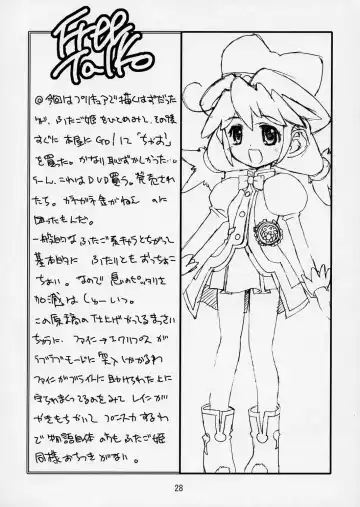 Free
Talk
@今回はプリキュアで描くはずだった
が、ふたご姫をひとめみて、その後
すぐに本屋にGO!して「ちゃお」
を買った。かなり恥ずかしかった…。
うーん、これはDVD買う。発売され
たら。
困ったもんだ。
一般的なふたご系キャラとちがって
基本的にふたりともおっちょこ
ちょい。なので息のピッタリ
加減は
この原稿の仕上げやってるまっさい
ちゅうに、ファイン→エクリプスが
ラブラブモードに突入しかかるわ
ファインがブライトに助けられた上に
守られまくってるのをみてレインが
やきもちやいて
で物語自体のふたご姫
同様おちつきがない。
28